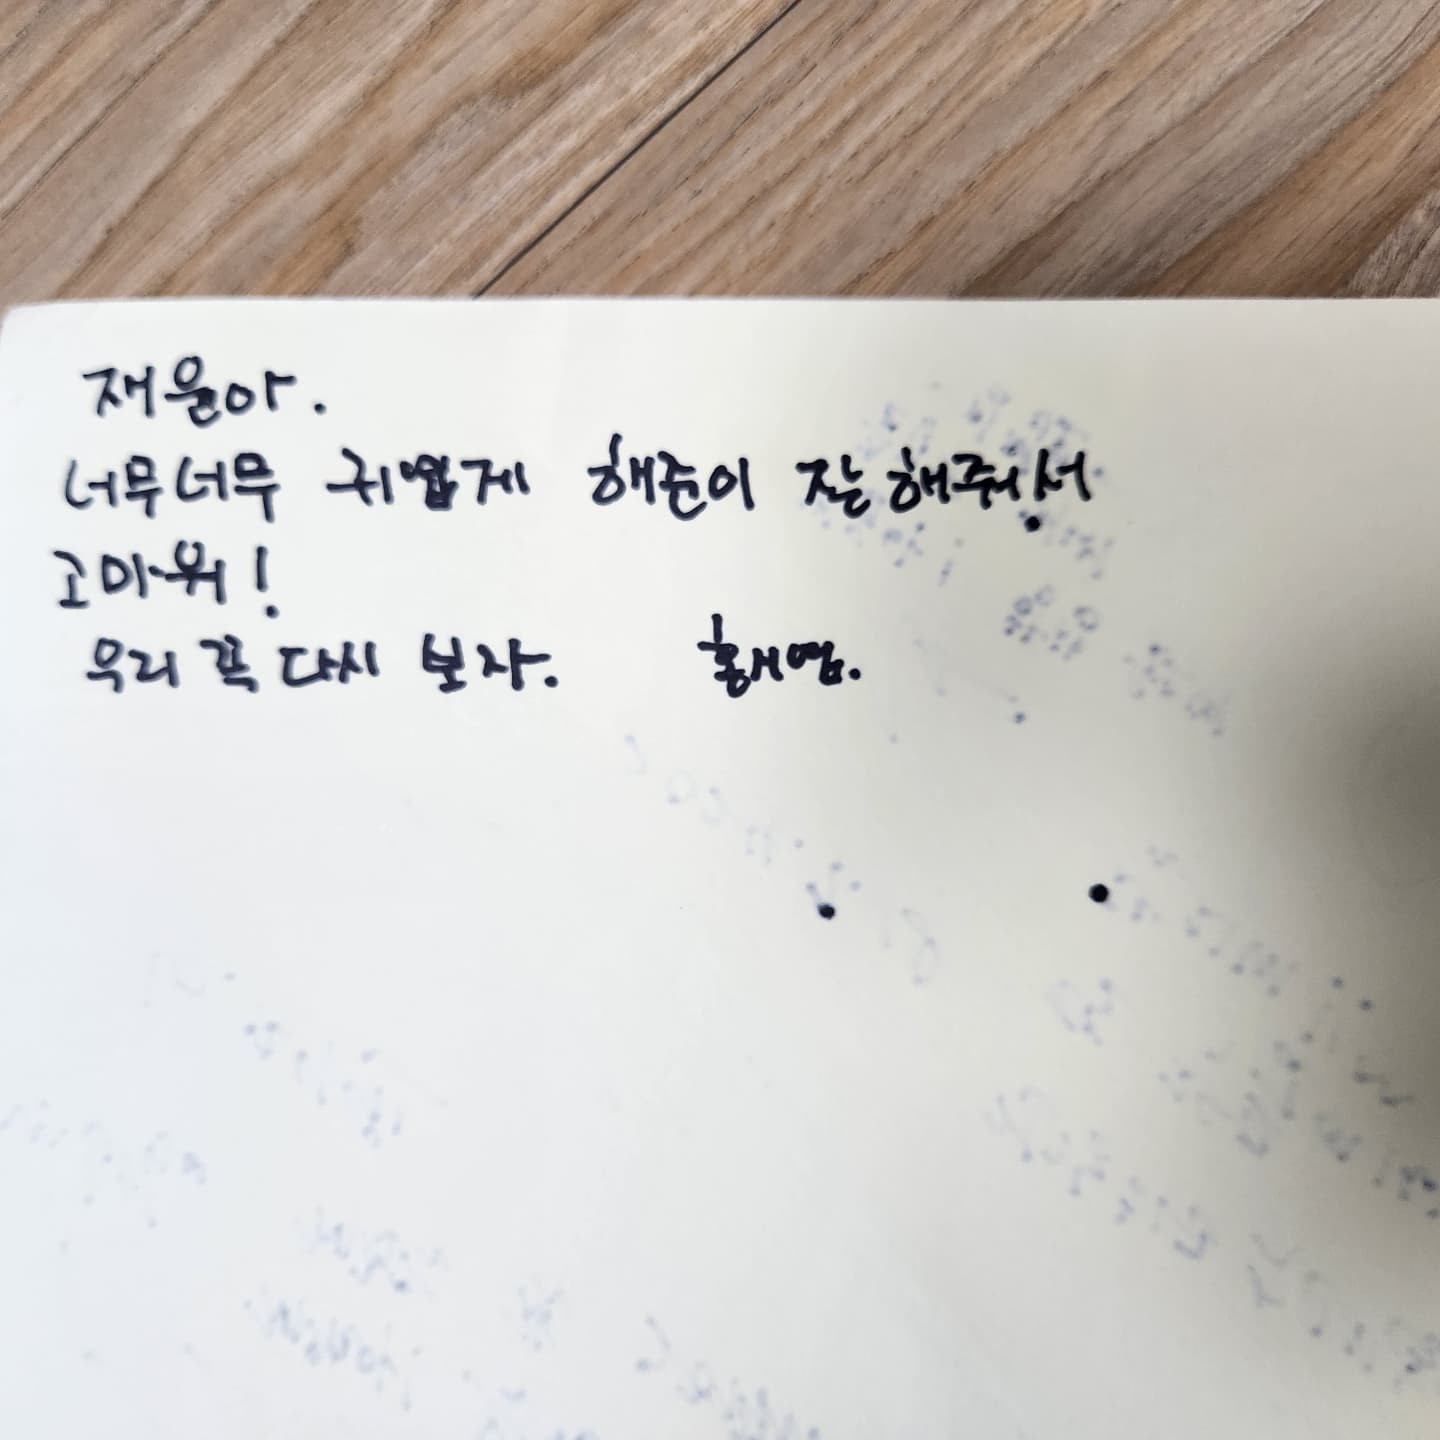 재윤아.
너무너무 귀엽게 해준이 잘해줘서
고마워!
우리 꼭 다시 보자.